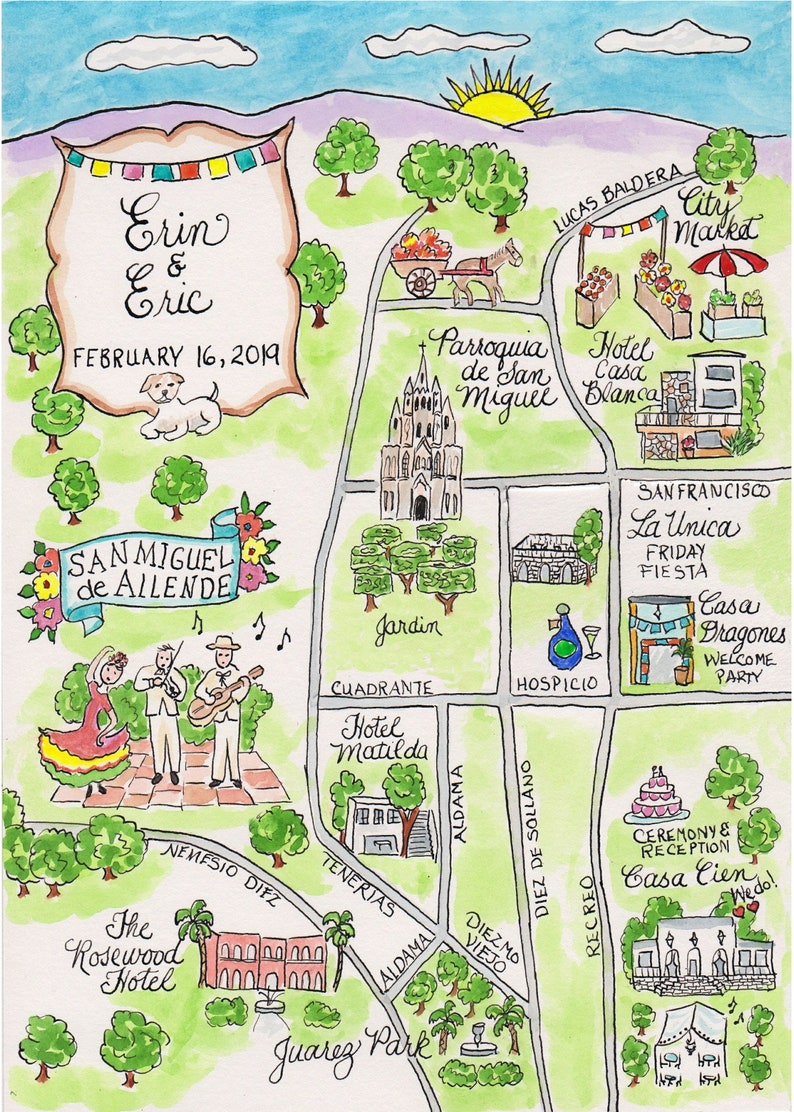 Erin
&
Eric
FEBRUARY 16, 2019
LUCAS BALDERA
City
Market
Parroquia
de San
Miguel
Hotel
Casa
Blanca
SAN FRANCISCO
La Unica
FRIDAY
FIESTA
SAN MIGUEL
de ALLENDE
Jardin
Casa
Dragones
WELCOME
PARTY
CUADRANTE
HOSPICIO
Hotel
Matilda
ALDAMA
DIEZ DE SOLLANO
CEREMONY &
RECEPTION
Casa Cien
We do!
NEMESIO DIEZ
TENERIAS
RECREO
The
Rosewood
Hotel
ALDAMA
DIEZMO
VIEJO
Juarez Park